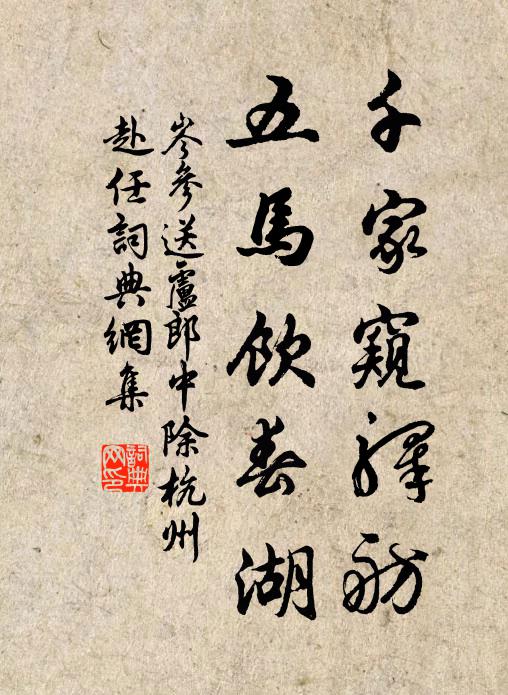 千家窺驛舫
五馬飲春湖
岑參送盧郎中除杭州
赴任詞典網集
詞典网印